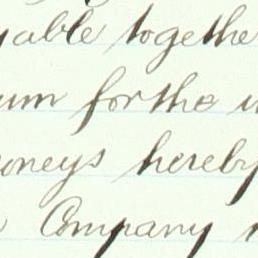 yable together
um for the
oneys hereby
Company